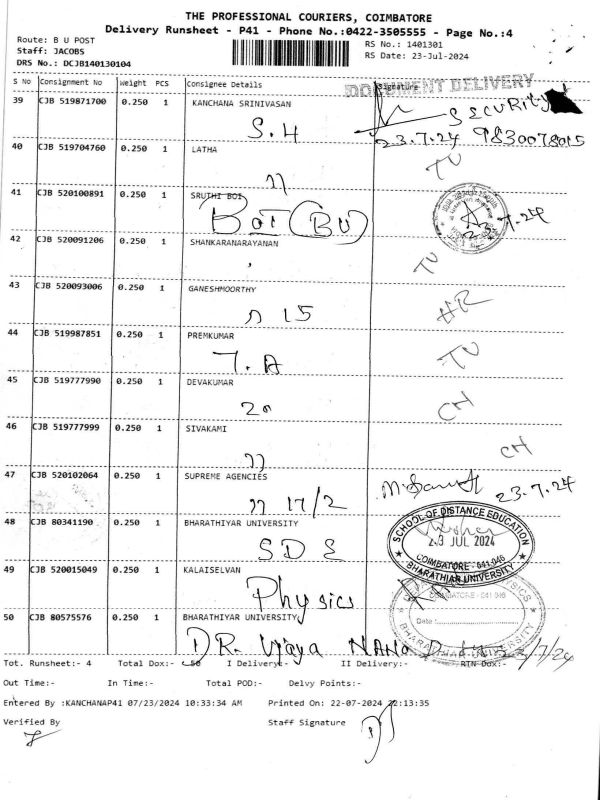 THE PROFESSIONAL COURIERS, COIMBATORE
Delivery Runsheet - P41 - Phone No.:0422-3505555 - Page No.:4
Route: B U POST
Staff: JACOBS
DRS No.: DCJB140130104
RS No.: 1401301
RS Date: 23-Jul-2024
S No Consignment No Weight PCS Consignee Details Signature
DOCUMENT DELIVERY
39 CJB 519871700 0.250 1 KANCHANA SRINIVASAN
S.H
SECURITY
23.7.24 9830078015
40 CJB 519704760 0.250 1 LATHA
TV
41 CJB 520100891 0.250 1 SRUTHI BOI
BOI (BU)
23.7.24
42 CJB 520091206 0.250 1 SHANKARANARAYANAN
TV
43 CJB 520093006 0.250 1 GANESHMOORTHY
15
HR
44 CJB 519987851 0.250 1 PREMKUMAR
T.A
TV
45 CJB 519777990 0.250 1 DEVAKUMAR
20
CH
46 CJB 519777999 0.250 1 SIVAKAMI
CH
47 CJB 520102064 0.250 1 SUPREME AGENCIES
17/2
23.7.24
48 CJB 80341190 0.250 1 BHARATHIYAR UNIVERSITY
SDE
SCHOOL OF DISTANCE EDUCATION
23 JUL 2024
COIMBATORE - 641 046
BHARATHIAR UNIVERSITY
49 CJB 520015049 0.250 1 KALAISELVAN
Physics
COIMBATORE - 641 046
Date :
BHARATHIAR UNIVERSITY
50 CJB 80575576 0.250 1 BHARATHIYAR UNIVERSITY
DR. Vijaya NANO
23/7/24
Tot. Runsheet:- 4 Total Dox:- 50 I Delivery:- II Delivery:- RTN Dox:-
Out Time:- In Time:- Total POD:- Delvy Points:-
Entered By :KANCHANAP41 07/23/2024 10:33:34 AM Printed On: 22-07-2024 22:13:35
Verified By Staff Signature